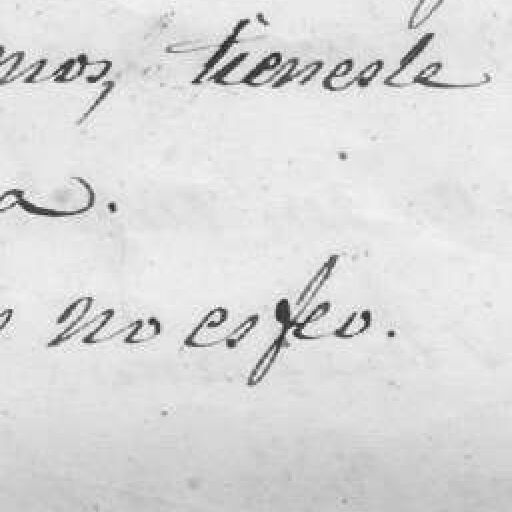 mos, tienesle
a.
no es feo.